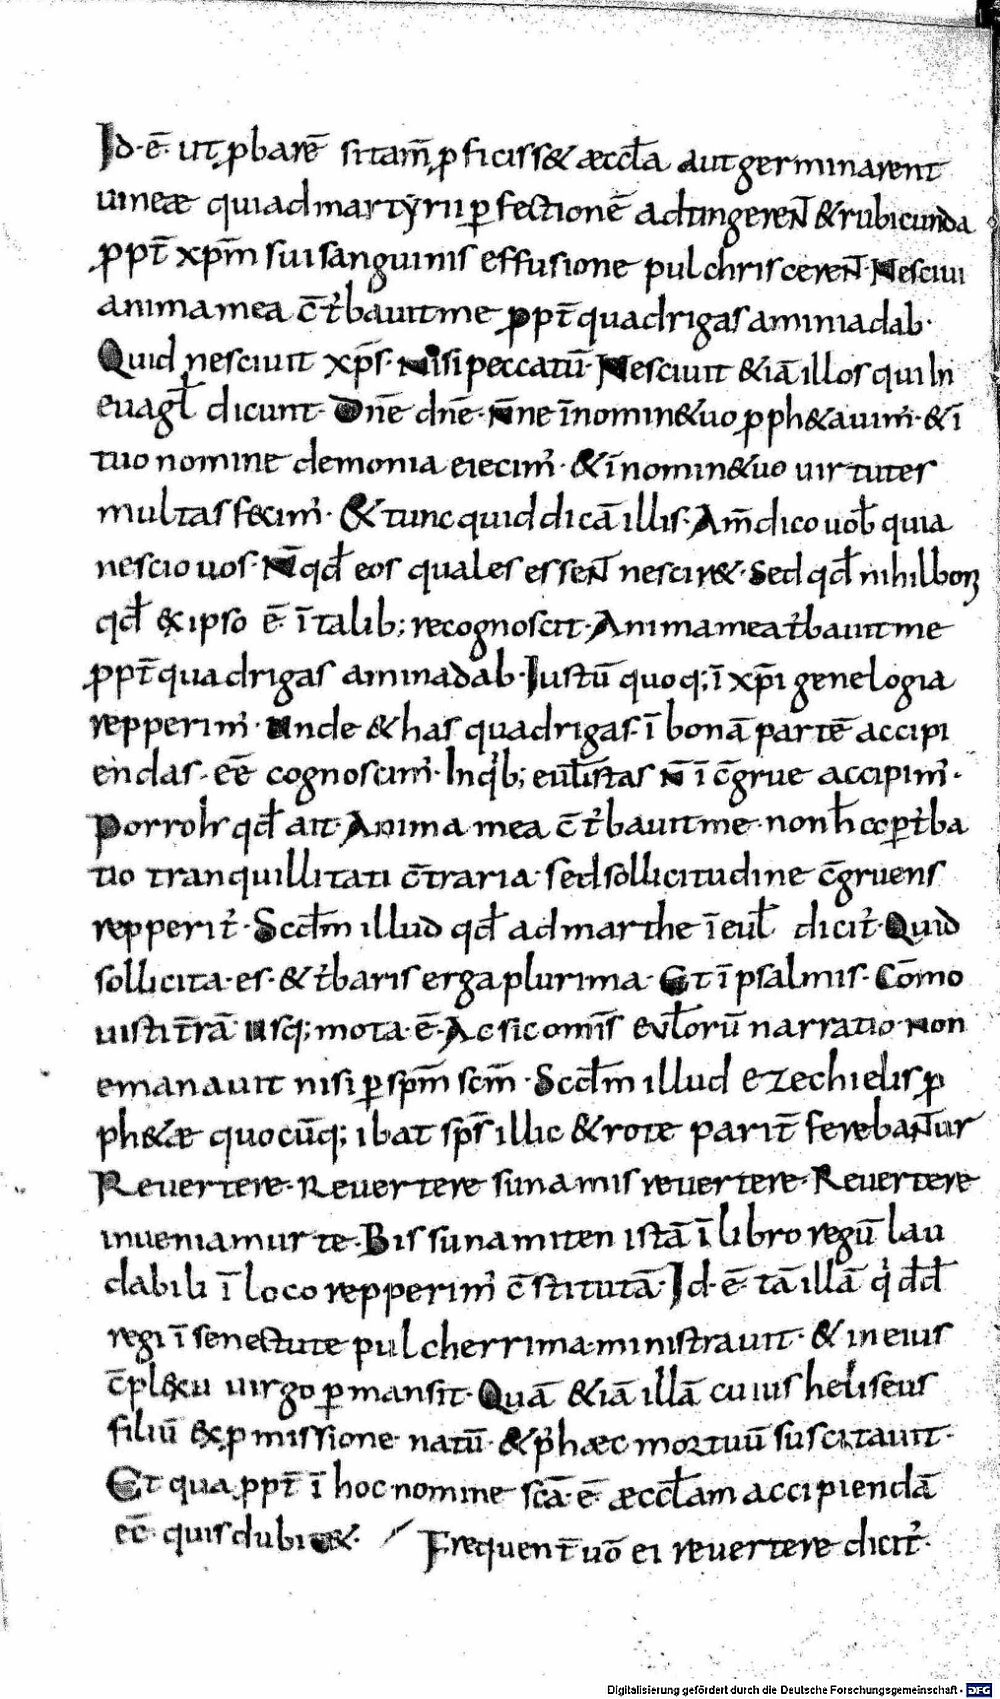 Id·ē· ut ꝓbarē si tam̄ ꝓficisset æccła aut germinarent
uineæ qui ad martyrii ꝑfectionē adtingereN̄ & rubicunda
ꝓpt̄ xp̄m sui sanguinis effusione pulchrisçereN̄· Nesciui
anima mea c̄t᷑bauit me ꝓpt̄ quadrigas aminiadab·
Quid nesciuit xp̄s· Nisi peccatū· Nesciuit &iā illos qui In
euagł dicunt· Dn̄e dn̄e· N̄ne ī nomin& uo ꝓph&auim᷒· & ī
tuo nomine demonia eiecim᷒· & ī nomin& uo uirtutes
multas fecim᷒· & tunc quid dicā illis· Am̄ dico uob̄ quia
nescio uos· N̄ qđ eos quales esseN̄ nescir&· Sed qđ nihil boꝝ
qđ &x ipso ē· ī talib; recognoscit· Anima mea t᷑bauit me
ꝓpt̄ quadrigas aminadab· Iustū quoq; ī xp̄i genelogia
repperim᷒· Unde & has quadrigas· ī bonā partē accipi
endas· eē cognoscim᷒· In qⁱb; eul̄istas N̄ ī c̄grue accipim᷒·
Porro h̄ qđ ait· Anima mea c̄t᷑bauit me· non h̄ ccꝑt᷑ba
tio tranquillitati c̄traria· sed sollicitudine c̄gruens
repperit᷑· Sccđm illud qđ ad marthe ī eul̄ dicit᷑· Quid
sollicita·es· & t᷑baris erga plurima· Et ī psalmis· Cōmo
uisti t̄rā usq; mota·ē· Ac sic om̄s eul̄orū narratio non
emanauit nisi ꝑ sp̄m sc̄m· Sccđm illud ezechielis ꝓ
ph&æ quocūq; ibat sp̄s illic & rote parit̄ ferebaN̄tur
Reuertere· Reuertere sunamis reuertere· Reuertere
inueniamur te· Bis sunamiten istā ī libro regū lau
dabili ī loco repperim᷒ c̄stitutā· Id·ē· tā illā qⁱ dđ
regi ī senectute pulcherrima ministrauit· & in eius
c̄pl&xu uirgo ꝑmansit· Quā &iā illā cuius heliseus
filiū &x ꝓmissione natū· & p᷒ hæc mortuū suscitauit·
Et qua ꝓpt̄ ī hoc nomine sc̄ā·ē· æccłam accipiendā
eē· quis dubi&· Frequent̄ uō ei reuertere dicit᷑·
Digitalisierung gefördert durch die Deutsche Forschungsgemeinschaft - DFG